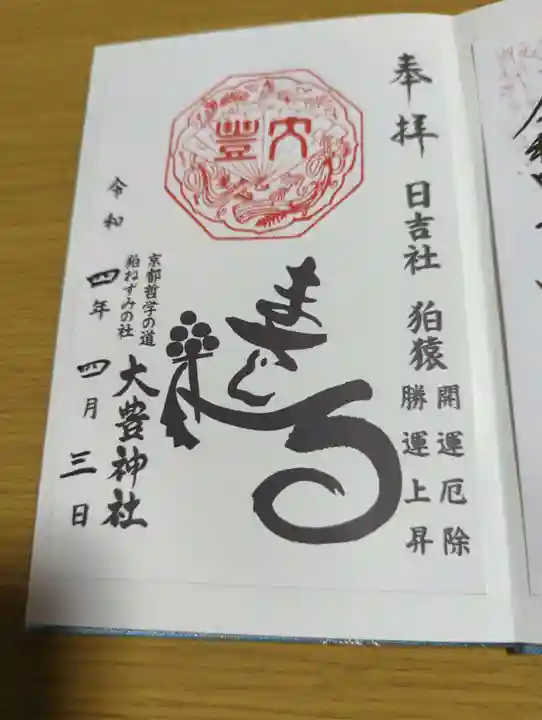 奉拝 日吉社 狛猿
開運厄除
勝運上昇
大豊
まさる
京都哲学の道
狛ねずみの社
大豊神社
令和四年四月三日